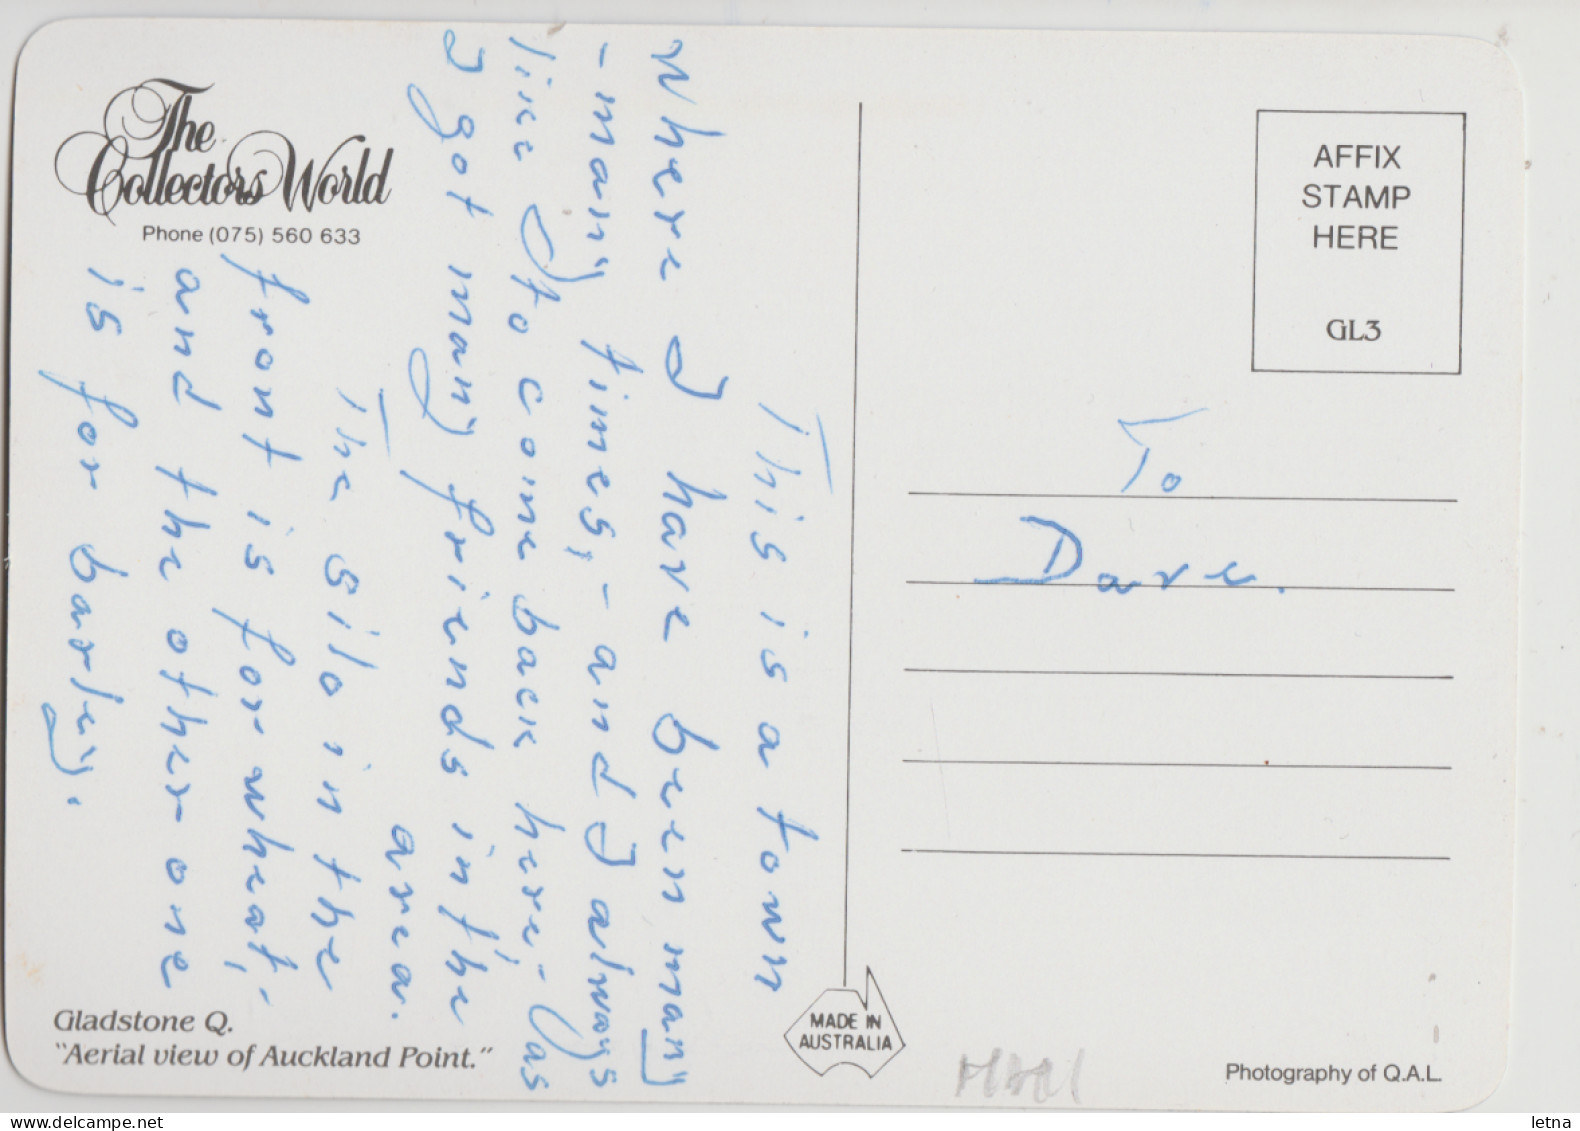 The
Collectors World
Phone (075) 560 633
This is a town
where I have been many
-many times,- and I always
like to come back here,- as
I got many friends in the
area.
The silo in the
front is for wheat,-
and the other one
is for barley.
Gladstone Q.
"Aerial view of Auckland Point."
MADE IN
AUSTRALIA
AFFIX
STAMP
HERE
GL3
To
Dave.
Photography of Q.A.L.
letna